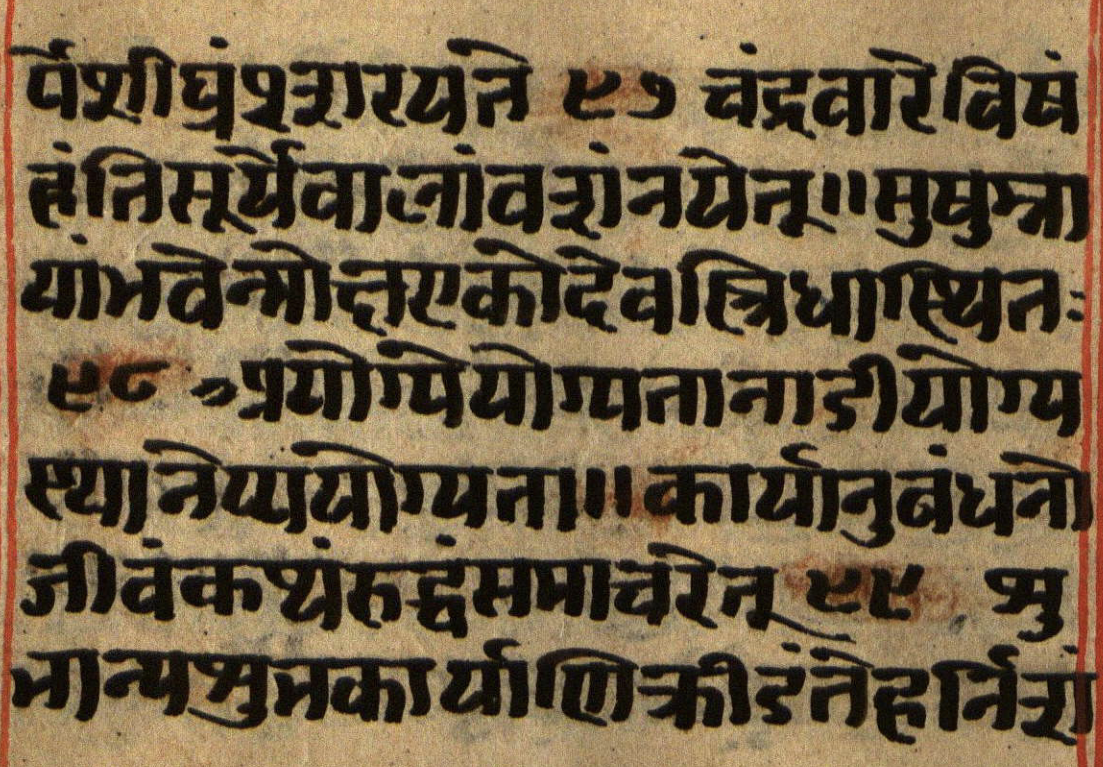 र्पेशीघ्रंश्चरारयते ९७ चंद्रवारेविषं
हंतिसूर्येवालांवशंनयेत्॥सुषुम्ना
यांभवेन्मोक्षएकोदेवस्त्रिधास्थितः
९८ प्रयोग्येयोग्यतानाडीयोग्य
स्थानेप्ययोग्यता॥।कार्यानुबंधनो
जीवंकथंरुद्वंसमाचरेत् ९९ शु
भान्यशुभकार्याणिक्रीडंतेहर्निशं